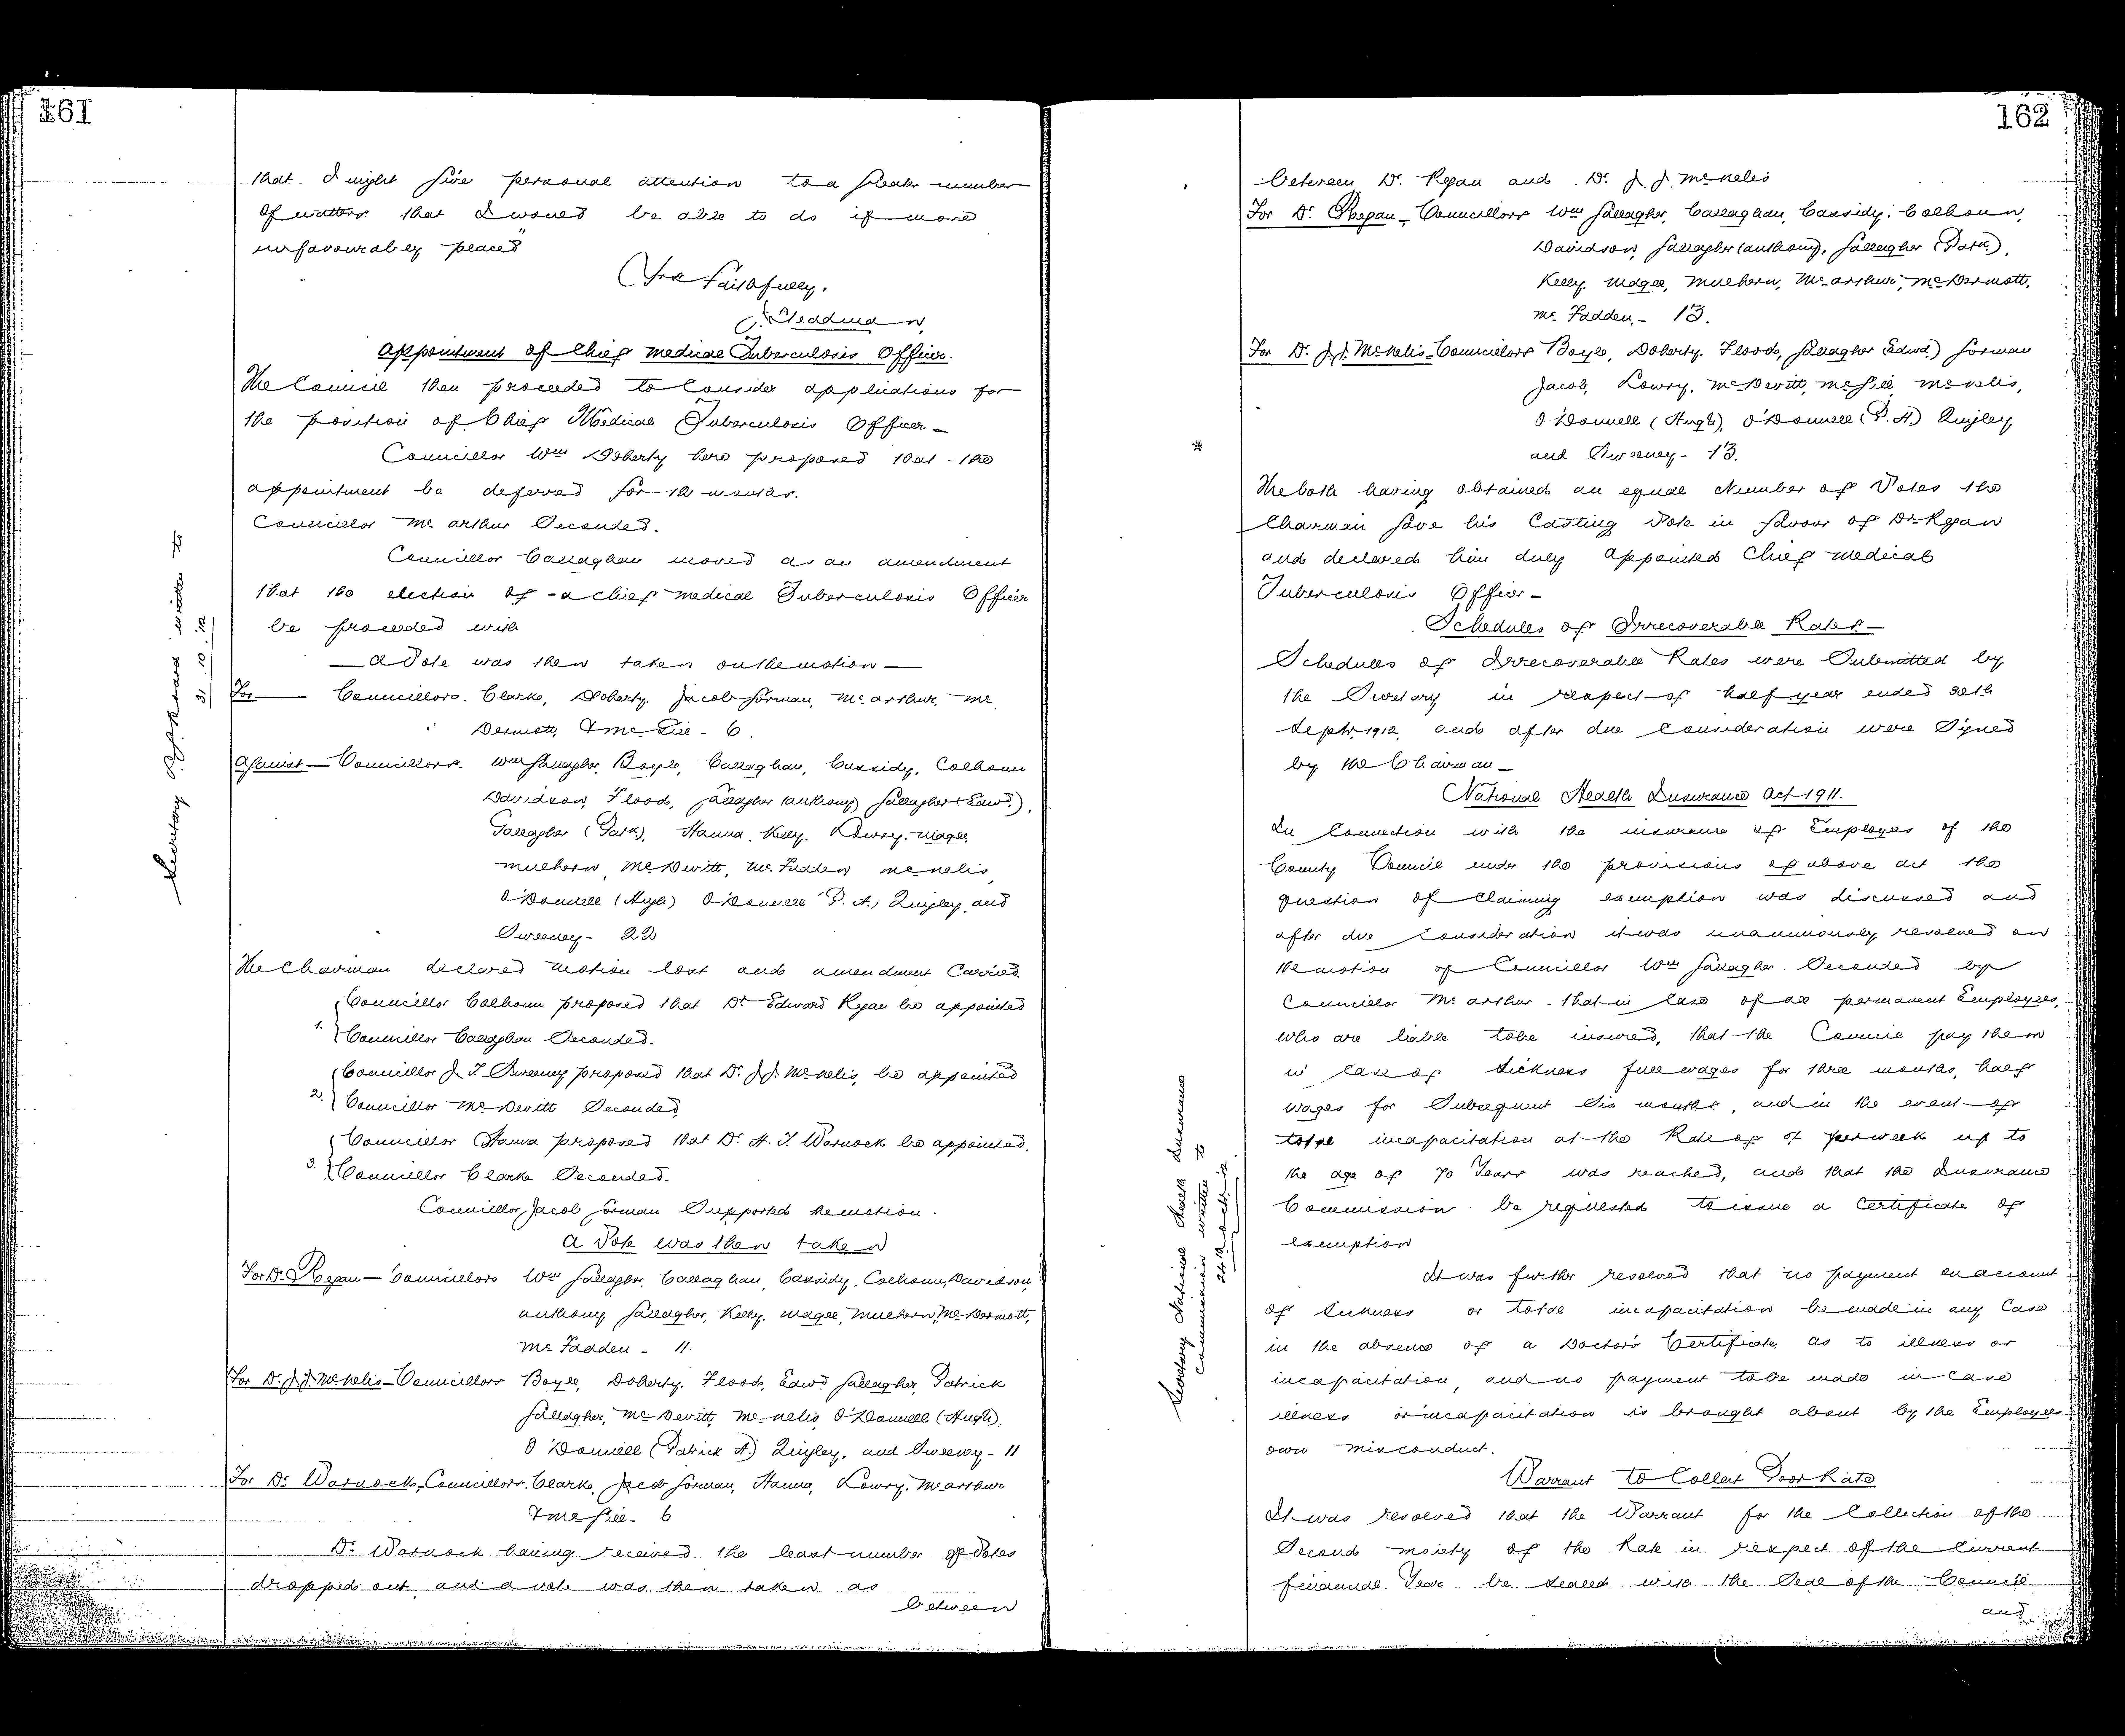 161
that I might give personal attention to a greater number
of matters that I would be able to do if more
unfavourably placed"
Yrs Faithfully.
Appointment of Chief Medical Tuberculosis Officer.
The Council then proceeded to consider applications for
the position of Chief Medical Tuberculosis Officer -
Councillor Wm Doherty here proposed that the
appointment be deferred for 12 months.
Councillor McArthur Seconded.
Councillor Callaghan moved as an amendment
that the election of a chief Medical Tuberculosis Officer
be proceeded with
— A Vote was then taken on the motion —
For — Councillors. Clarke, Doherty, Jacob Gorman, McArthur, Mc
Dermott, & McGill - 6.
Against — Councillors. Wm Gallagher, Boyle, Callaghan, Cassidy, Colhoun
Davidson, Flood, Gallagher (Anthony) Gallagher (Edwd.),
Gallagher (Patk), Hanna, Kelly, Lowry, Magee,
Mulhern, McDevitt, McFadden McNelis,
O'Donnell (Hugh) O'Donnell P. A.) Quigley, and
Sweeney - 22
The Chairman declared Motion lost and amendment Carried.
1. Councillor Colhoun proposed that Dr Edward Ryan be appointed
Councillor Callaghan Seconded.
2. Councillor J. T. Sweeney proposed that Dr. J. J. McNelis, be appointed
Councillor McDevitt Seconded
3. Councillor Hanna proposed that Dr. H. T. Warnock be appointed.
Councillor Clarke Seconded.
Councillor Jacob Gorman Supported the motion.
A Vote was then taken
For Dr. Ryan — Councillors Wm Gallagher, Callaghan, Cassidy, Colhoun, Davidson,
Anthony Gallagher, Kelly, Magee, Mulhern, McDermott,
McFadden - 11.
For Dr. J. J. McNelis — Councillors Boyle, Doherty, Flood, Edwd Gallagher, Patrick
Gallagher, McDevitt, McNelis, O'Donnell (Hugh),
O'Donnell (Patrick A.) Quigley, and Sweeney - 11
For Dr. Warnock, Councillors. Clarke, Jacob Gorman, Hanna, Lowry, McArthur
& McGill - 6
Dr. Warnock having received the least number of Votes
dropped out and a vote was then taken as
between
Secretary written to
31.10.12
162
between Dr. Ryan and Dr. J. J. McNelis
For Dr. Ryan - Councillors Wm Gallagher, Callaghan, Cassidy, Colhoun,
Davidson, Gallagher (Anthony), Gallagher (Patk.),
Kelly, Magee, Mulhern, McArthur, McDermott,
McFadden. - 13.
For Dr. J. J. McNelis - Councillors Boyle, Doherty, Flood, Gallagher (Edwd.) Gorman
Jacob, Lowry, McDevitt, McGill, McNelis,
O'Donnell (Hugh), O'Donnell (P. A.) Quigley
and Sweeney - 13.
The both having obtained an equal Number of Votes the
Chairman gave his Casting Vote in favour of Dr Ryan
and declared him duly appointed Chief Medical
Tuberculosis Officer -
Schedules of Irrecoverable Rates. -
Schedules of Irrecoverable Rates were Submitted by
the Secretary in respect of half year ended 30th
Septr. 1912, and after due consideration were Signed
by the Chairman -
National Health Insurance Act 1911.
In Connection with the insurance of Employes of the
County Council under the provisions of above act the
question of claiming exemption was discussed and
after due consideration it was unanimously resolved on
the motion of Councillor Wm Gallagher. Seconded by
Councillor McArthur. that in case of all permanent Employees,
who are liable to be insured, that the Council pay them
in case of sickness full wages for three months, half
wages for Subsequent Six months, and in the event of
total incapacitation at the Rate of 5/ per week up to
the age of 70 Years was reached, and that the Insurance
Commission be requested to issue a Certificate of
exemption
It was further resolved that no payment on account
of sickness or total incapacitation be made in any Case
in the absence of a Doctor's Certificate, as to illness or
incapacitation, and no payment to be made in case
illness or incapacitation is brought about by the Employees
own misconduct.
Warrant to Collect Poor Rate
It was resolved that the Warrant for the Collection of the
Second moiety of the Rate in respect of the Current
financial Year be sealed with the Seal of the Council
and
Secretary National Health Insurance
Commission written to
24th Octr. 12.